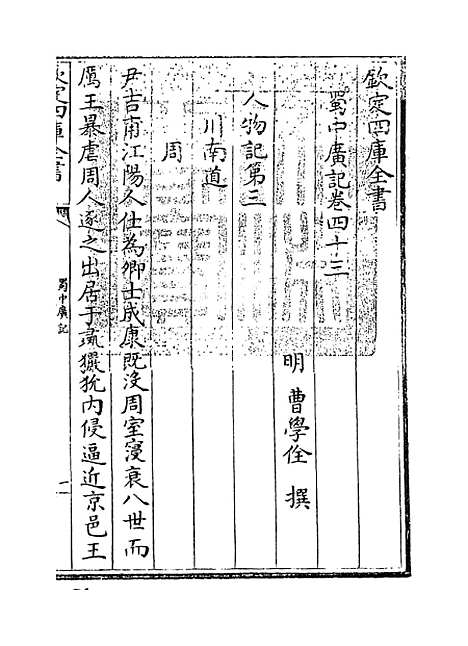 欽定四庫全書
蜀中廣記卷四十三
明 曹學佺 撰
人物記第三
川南道
周
尹吉甫江陽人仕為卿士成康既沒周室寖衰八世而
厲王暴虐周人逐之出居于彘玁狁內侵逼近京邑王
欽定四庫全書
蜀中廣記